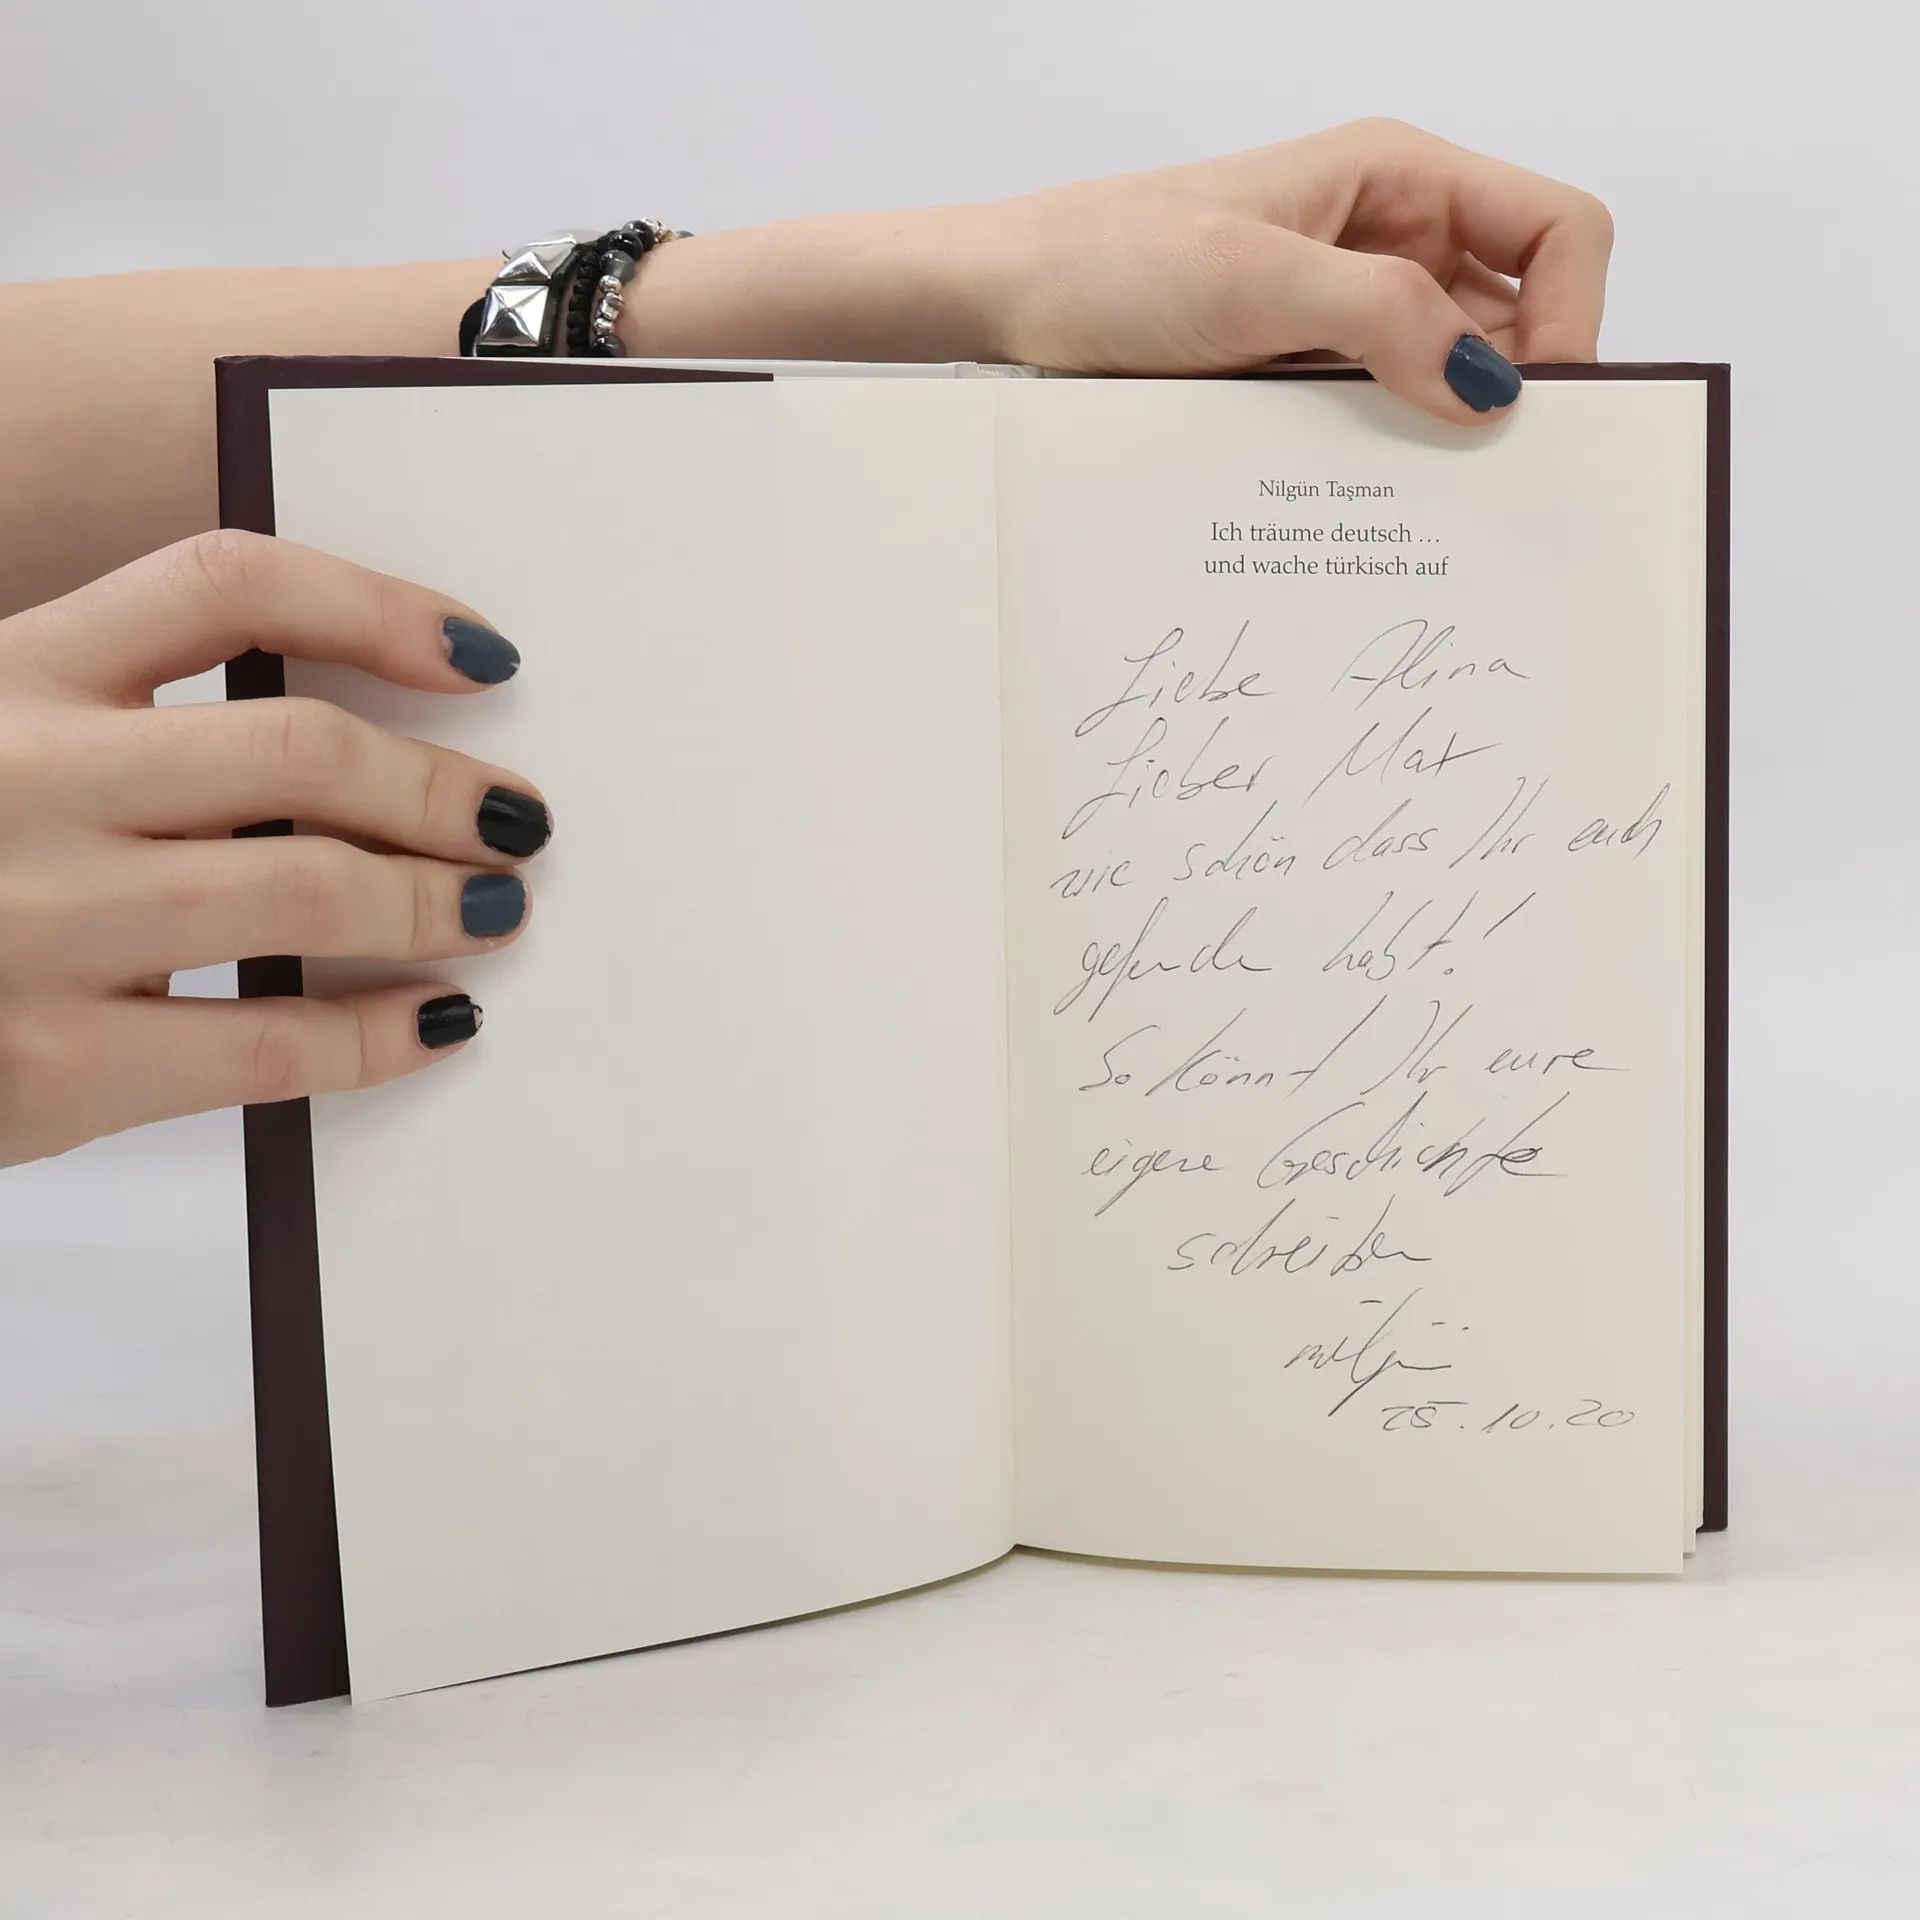 Nilgün Taşman
Ich träume deutsch …
und wache türkisch auf
Liebe Alina
Lieber Max
wie schön dass Ihr euch
gefunden habt!
So könnt Ihr eure
eigene Geschichte
schreiben
nilgün
25.10.20